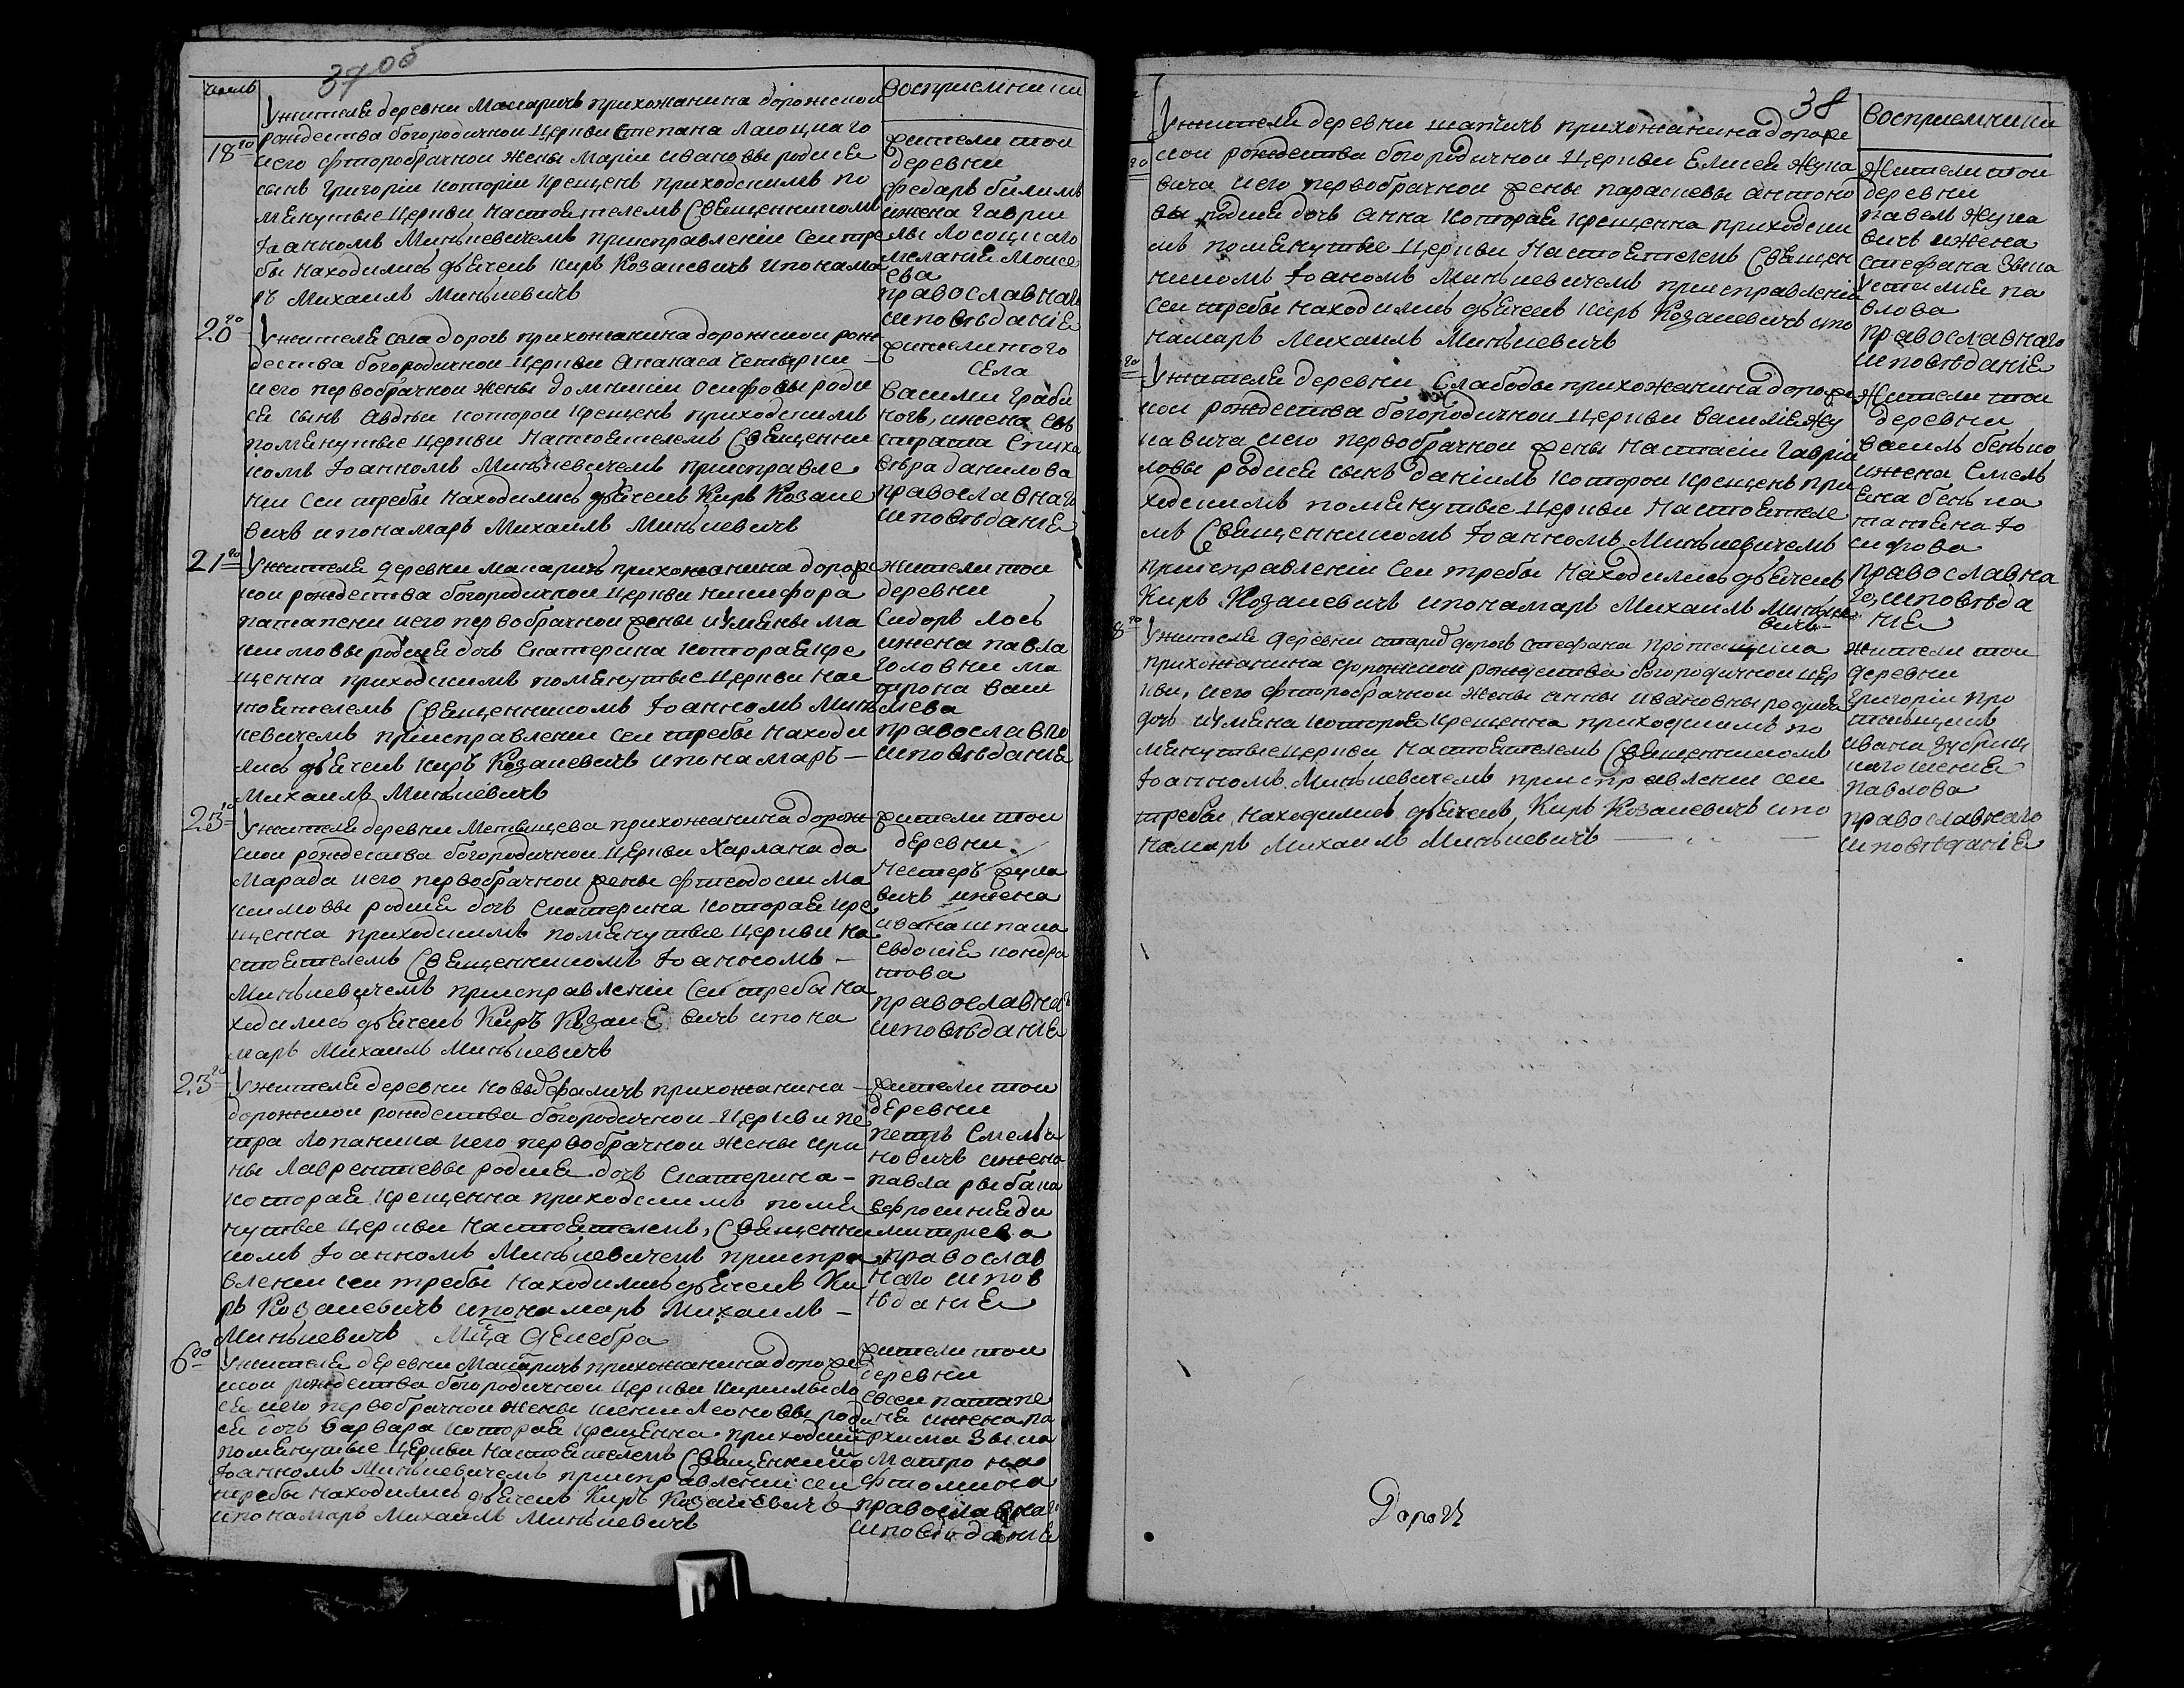 37 об
числ
восприемники
Ужителя деревни Макаричъ прихожанина дорожской
рождества богородичной церкви Степана Ласоцкаго
18го
иего фторобрачной жены Маріи ивановы родися
сынъ Григоріи которіи крещенъ приходскимъ по
менутые церкви настоятелемъ Священникомъ
Іоанномъ Минкевичемъ приисправленіи сеи тре
бы находились дьячекъ Киръ Козакевичъ ипонама
рь Михаилъ Минкевичъ
жители тои
деревни
федаръ билимъ
ижена Гаври
лы Лосоцкаго
меланія Моисе
ева
православнаго
исповѣданія
20го
Ужителя села дорогъ прихожанина дорожскои рож
дества богородичнои церкви Апанаса
иего первобрачной жены домникіи осифовы роди
ся сынъ Авдѣи которои крещенъ приходскимъ
поменутые церкви настоятелемъ Священни
комъ Іоанномъ Минкевичемъ приисправле
ніи сеи требы находились дьячекъ Киръ Козаке
вичъ ипонамаръ Михаилъ Минкевичъ
жителитого
села
Василии Граби
, ижена евъ
страта
данилова
православнаго
исповѣданія
21го
Ужителя деревни макаричъ прихожанина дорож
кои рождества богородичной церкви никифора
патапени иего первобрачной жены иулiяны ма
кимовы родися дочь Екатерина которая кре
щенна приходскимъ поменутые церкви нас
тоятелемъ Священникомъ Іоанномъ Мин
кевичемъ приисправленіи сеи требы находи
лись дьячекъ Киръ Козакевичъ ипонамаръ —
Михаилъ Минкевичъ
жители тои
деревни
Сидоръ лось
ижена павла
головни ма
трона васи
лева
православно
исповѣданія
23го
Ужителя деревни Метявщева прихожанина дорож
скои рождества богородичной церкви Харлана да
марада иего первобрачной жены фтеодосіи ма
кимовы родися дочь Екатерина которая кре
щенна приходскимъ поменутые церкви на
стоятелемъ Священникомъ Іоанномъ —
Минкевичемъ приисправленіи сеи требы на
ходились дьячекъ Киръ Козакевичъ ипона
маръ Михаилъ Минкевичъ
жители тои
деревни
Нестеръ жука
вичъ ижена
ивана шпака
евдокія кондра
това
православнаго
исповѣданія
23го
Ужителя деревни новыдфаличъ прихожанина —
дорожскои рождества богородичной церкви пе
тра Лопаника иего первобрачной жены ири
ны лаврентевы родися дочь Екатерина —
которая крещенна приходскимъ поме
нутые церкви настоятелемъ, Священни
комъ Іоанномъ Минкевичемъ прииспра
вленіи сеи требы находились дьячекъ Ки
ръ Козакевичъ ипонамаръ Михаилъ —
Минкевичъ Мца декебра
жители тои
деревни
петръ Емелья
новичъ ижена
павла рыбака
ефросинія ди
митриева
православ
наго испов
ѣданія
6го
Ужителя деревни Макаричъ прихожанина дорож
скои рождества богородичной церкви Кирилы ло
ся иего первобрачной жены ксени леоновы роди
ся дочь варвара которая крещенна приходскимъ
поменутые церкви настоятелемъ Священником
Іоанномъ Минкевичемъ приисправленіи сеи
требы находились дьячекъ Киръ Козакевичъ
ипонамаръ Михаилъ Минкевичъ
жители тои
деревни
евсеи патапе
ня ижена па
рхима зыка
Матрона
фтомина
православнаго
исповѣданія
38
восприемники
Ужителя деревни шатичъ прихожанина дорож
скои рождества богородичной церкви Елисея жука
вича иего первобрачной жены парасцевы антоно
вы родися дочь анна которая крещенна приходски
мъ поменутые церкви настоятелемъ Священ
никомъ Іоаномъ Минкевичемъ приисправленіи
сеи требы находились дьячекъ Киръ Козакевичъ ипо
намаръ Михаилъ Минкевичъ
го
Жители тои
деревни
павелъ жука
вичъ ижена
стефана зыка
устимія па
влова
православнаго
исповѣданія
го
Ужителя деревни Слабоды прихожанина дорож
кои рождества богородичной церкви василія жу
кавича иего первобрачной жены настасіи гаврiи
ловы родися сынъ даніилъ которои крещенъ при
ходскимъ поменутые церкви настоятеле
мъ Священникомъ Іоанномъ Минкевичемъ
приисправленіи сеи требы находились дьячекъ
Киръ Козакевичъ ипонамаръ Михаилъ Минке
вичъ
Жители тои
деревни
василь бенько
ижена Емель
яна бенька
татяна іо
сифова
православна
го, исповѣда
нія
8го
Ужителя деревни старыдорогъ стефана протащика
прихожанина дорожскои рождества богородичной цер
кви, иего фторобрачной жены анны ивановны родися
дочь иулiяна которая крещенна приходскимъ по
менутые церкви настоятелемъ Священникомъ
Іоанномъ Минкевичемъ приисправленіи сеи
требы находились дьячекъ, Киръ Козакевичъ ипо
намаръ Михаилъ Минкевичъ —
жители тои
деревни
григоріи про
тащикъ
ивана зубриц
каго ксенія
павлова
православнаго
исповѣданія
Дорогъ